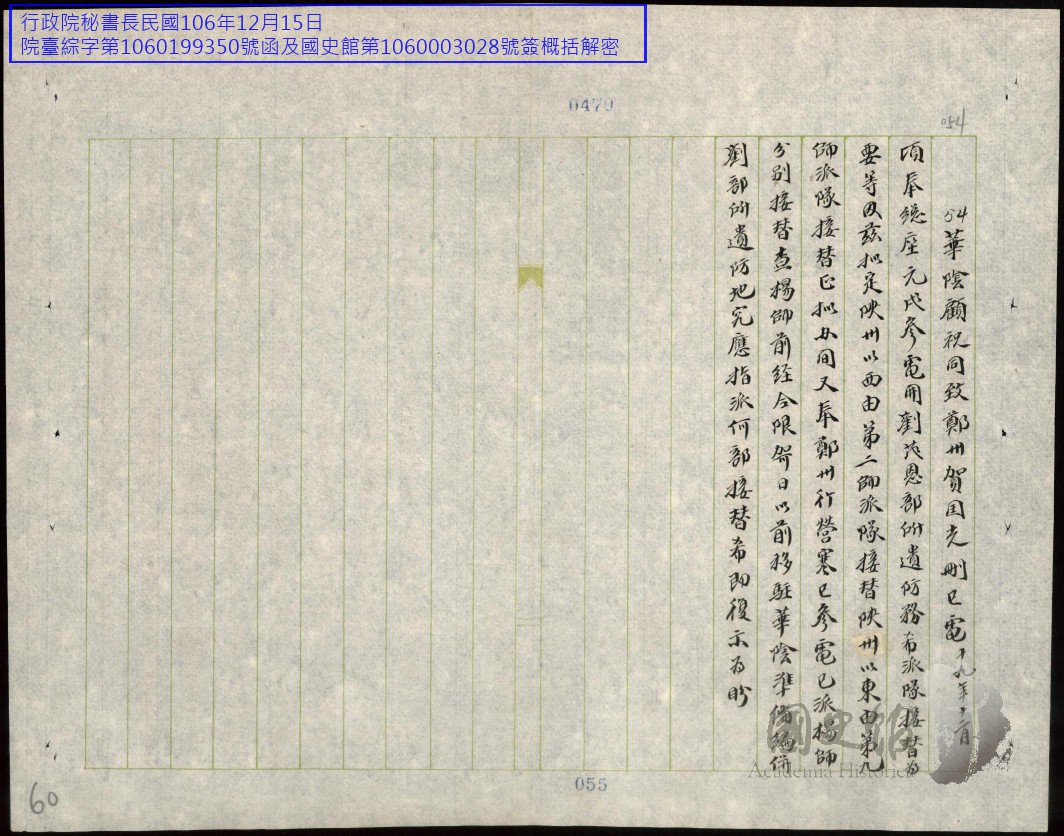 行政院秘書長民國106年12月15日
院臺綜字第1060199350號函及國史館第1060003028號簽概括解密
0470
054
54華陰顧祝同致鄭州賀国光刪巳電十九年十一月
頃奉總座元戌參電開劉茂恩部所遺防務希派隊接替為
要等因茲拟定陝州以西由第二師派隊接替陝州以東由第九
師派隊接替正拟办间又奉鄭州行營寒巳參電已派楊師
分別接替查楊師前經令限哿日以前移駐華陰準備編併
劉部所遺防地究應指派何部接替希即復示为盼
國史館
Academia Historica
055
60